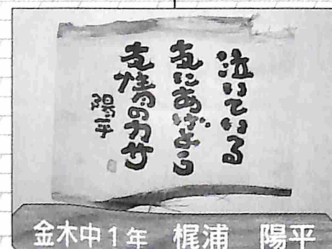 泣いている
友にあげよう
友情のカサ
陽平
金木中1年 梶浦 陽平